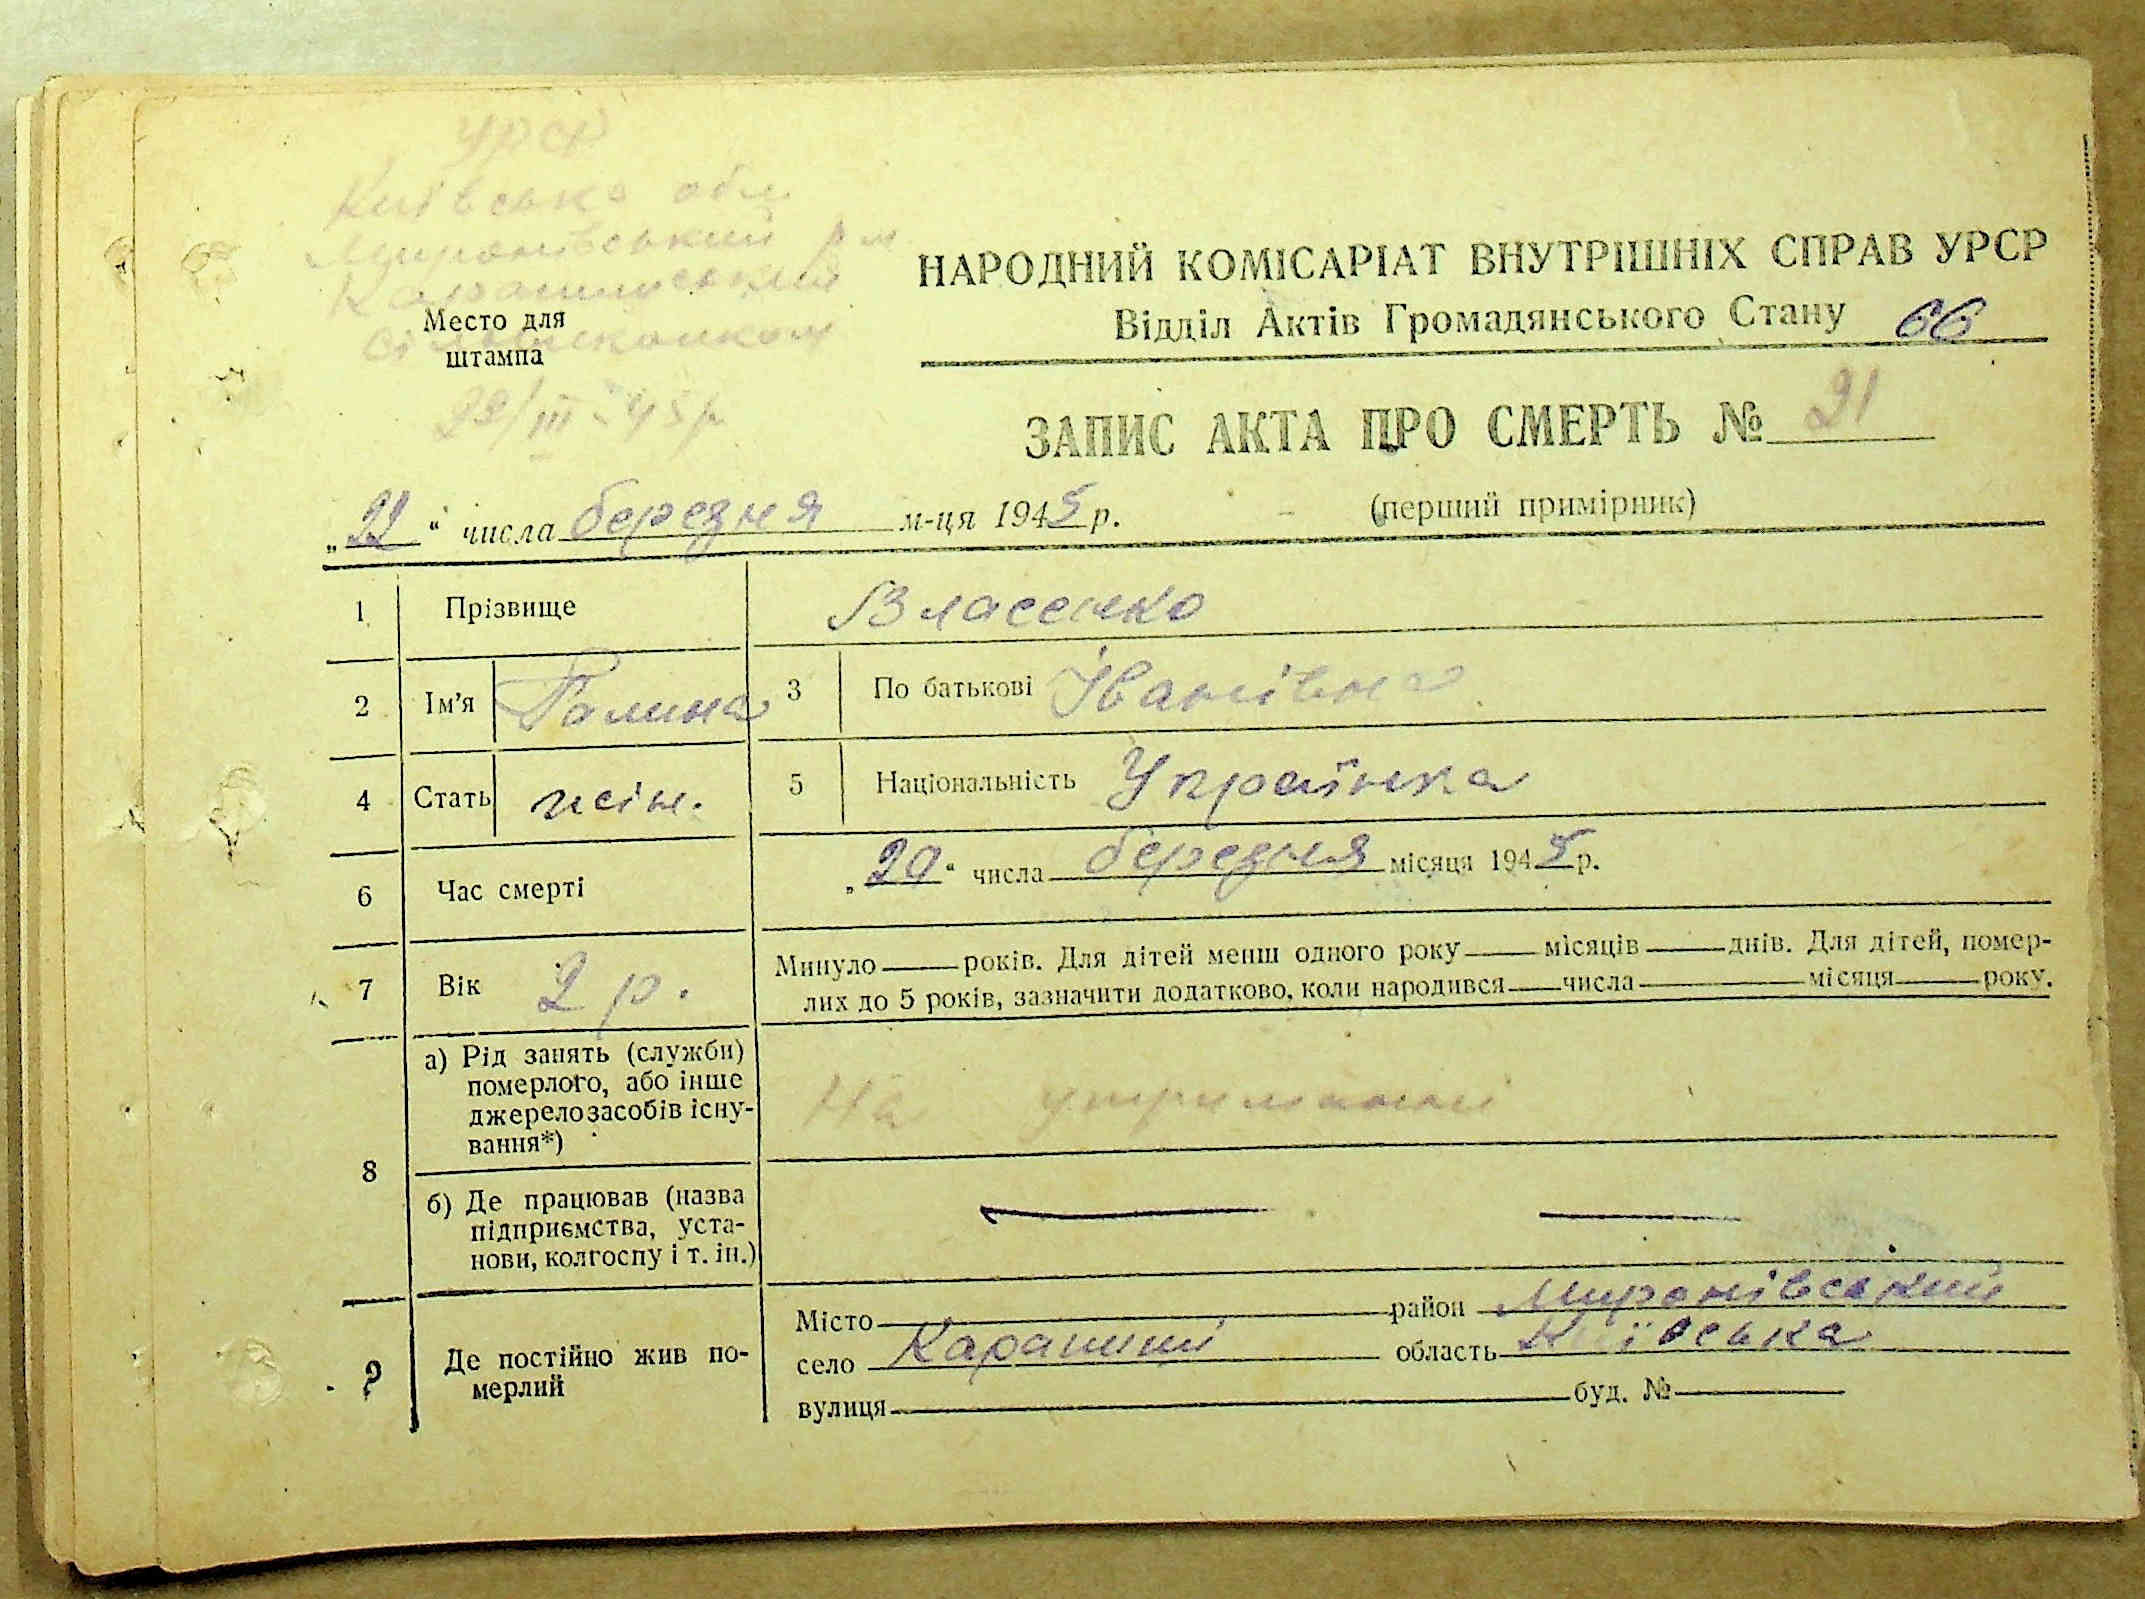 УРСР
Київська обл
Миронівський р-н
Карапишський
сільвиконком
Место для
штампа
22/III-45р
НАРОДНИЙ КОМІСАРІАТ ВНУТРІШНІХ СПРАВ УРСР
Відділ Актів Громадянського Стану 66
ЗАПИС АКТА ПРО СМЕРТЬ № 21
„22“ числа березня м-ця 1945 р. (перший примірник)
1 Прізвище Власенко
2 Ім'я Галина 3 По батькові Іванівна
4 Стать жін. 5 Національність Українка
6 Час смерті „20“ числа березня місяця 1945 р.
7 Вік 2 р. Минуло років. Для дітей менш одного року місяців днів. Для дітей, помер-
лих до 5 років, зазначити додатково, коли народився числа місяця року.
8 а) Рід занять (служби)
померлого, або інше
джерело засобів існу-
вання*)
На утриманні
б) Де працював (назва
підприємства, уста-
нови, колгоспу і т. ін.)
9 Де постійно жив по-
мерлий
Місто район Миронівський
село Карапиші область Київська
вулиця буд. №